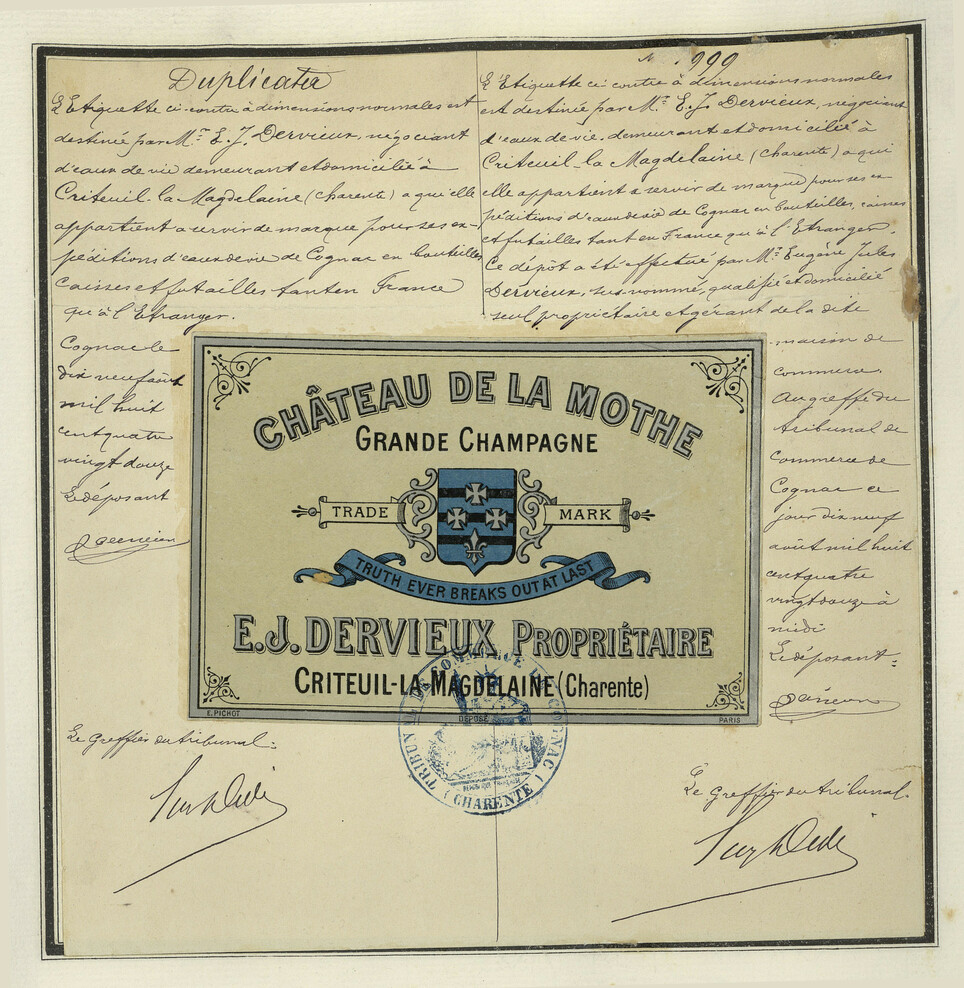 Duplicata
L'Etiquette ci-contre à dimensions normales est
destinée par Mr. E. J. Dervieux, négociant
d'eaux de vie demeurant et domicilié à
Criteuil-la Magdelaine (charente) a qui elle
appartient a servir de marque pour ses ex-
péditions d'eaux de vie de Cognac en bouteilles
caisses et futailles tant en France
qu'à l'Etranger.
Cognac le
dix neuf août
mil huit
cent quatre
vingt douze
Le déposant
N° 999
L'Etiquette ci contre à dimensions normales
est destinée par Mr. E. J. Dervieux, négociant
d'eaux de vie, demeurant et domicilié à
Criteuil-la Magdelaine (charente) a qui
elle appartient a servir de marque pour ses ex-
péditions d'eaux de vie de Cognac en bouteilles, caisses
et futailles tant en France qu'à l'Etranger.
Ce dépôt a été effectué par Mr. Eugène Jules
Dervieux, sus-nommé, qualifié et domicilié
seul propriétaire et gérant de la dite
maison de
commerce.
Au greffe du
tribunal de
Commerce de
Cognac ce
jour dix neuf
août mil huit
cent quatre
vingt douze à
midi
Le déposant:
CHÂTEAU DE LA MOTHE
GRANDE CHAMPAGNE
TRADE MARK
TRUTH EVER BREAKS OUT AT LAST
E.J. DERVIEUX PROPRIÉTAIRE
CRITEUIL-LA MAGDELAINE (Charente)
E. PICHOT DÉPOSÉ PARIS
TRIBUNAL DE COMMERCE DE COGNAC
(CHARENTE)
Le Greffier du tribunal:
Le Greffier du tribunal.